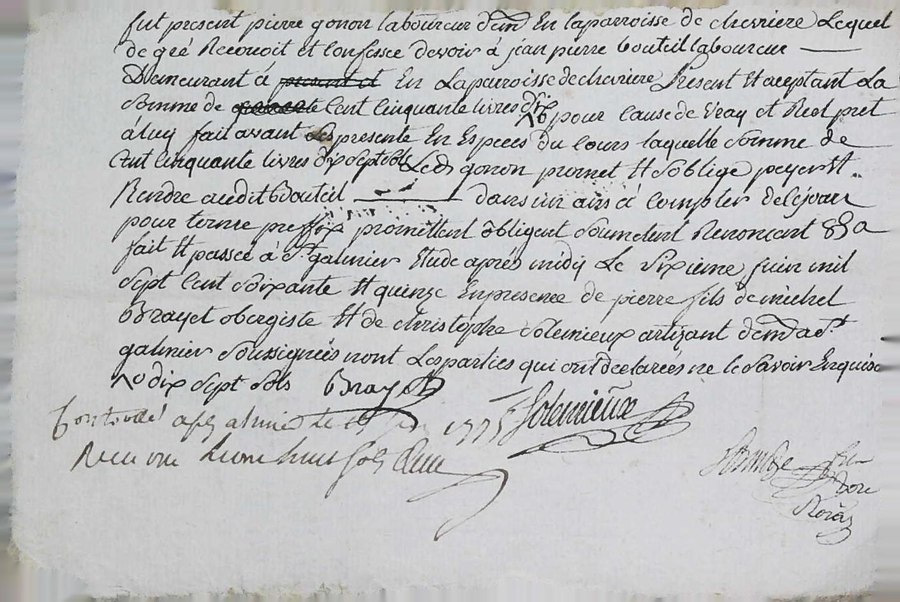 fut present pierre gonon laboureur dem.t En laparroisse de chevriere Lequel
de gré Reconoit et Confesse devoir á jean pierre bouteil laboureur
Demeurant á present et En Laparroisse de chevriere Present Et aceptant La
Somme de Cent Cinquante livres pour Cause de Vray et Reel pret
á luy fait avant Ses presente En Especes du Cours laquelle Somme de
Cent Cinquante livres dix sept sols Led. gonon promet Et Soblige payer Et
Rendre audit Bouteil dans un ans á Compter de Cejour
pour terme preffix promettent obligent Soumettent Renoncant &a
fait Et passé á St. galmier Etude aprés midy Le Sixieme juin mil
Sept Cent Soixante Et quinze Enpresence de pierre fils de michel
Brayet obergiste Et de christophe Solemieux artizant dem.t aud.
galmier Soussignées nont Lesparties qui ont declarées ne le Savoir Enquise
dix Sept Sols Brayet
Controllé a St galmier le 1775 Solemieux
Recu une livre huit sols